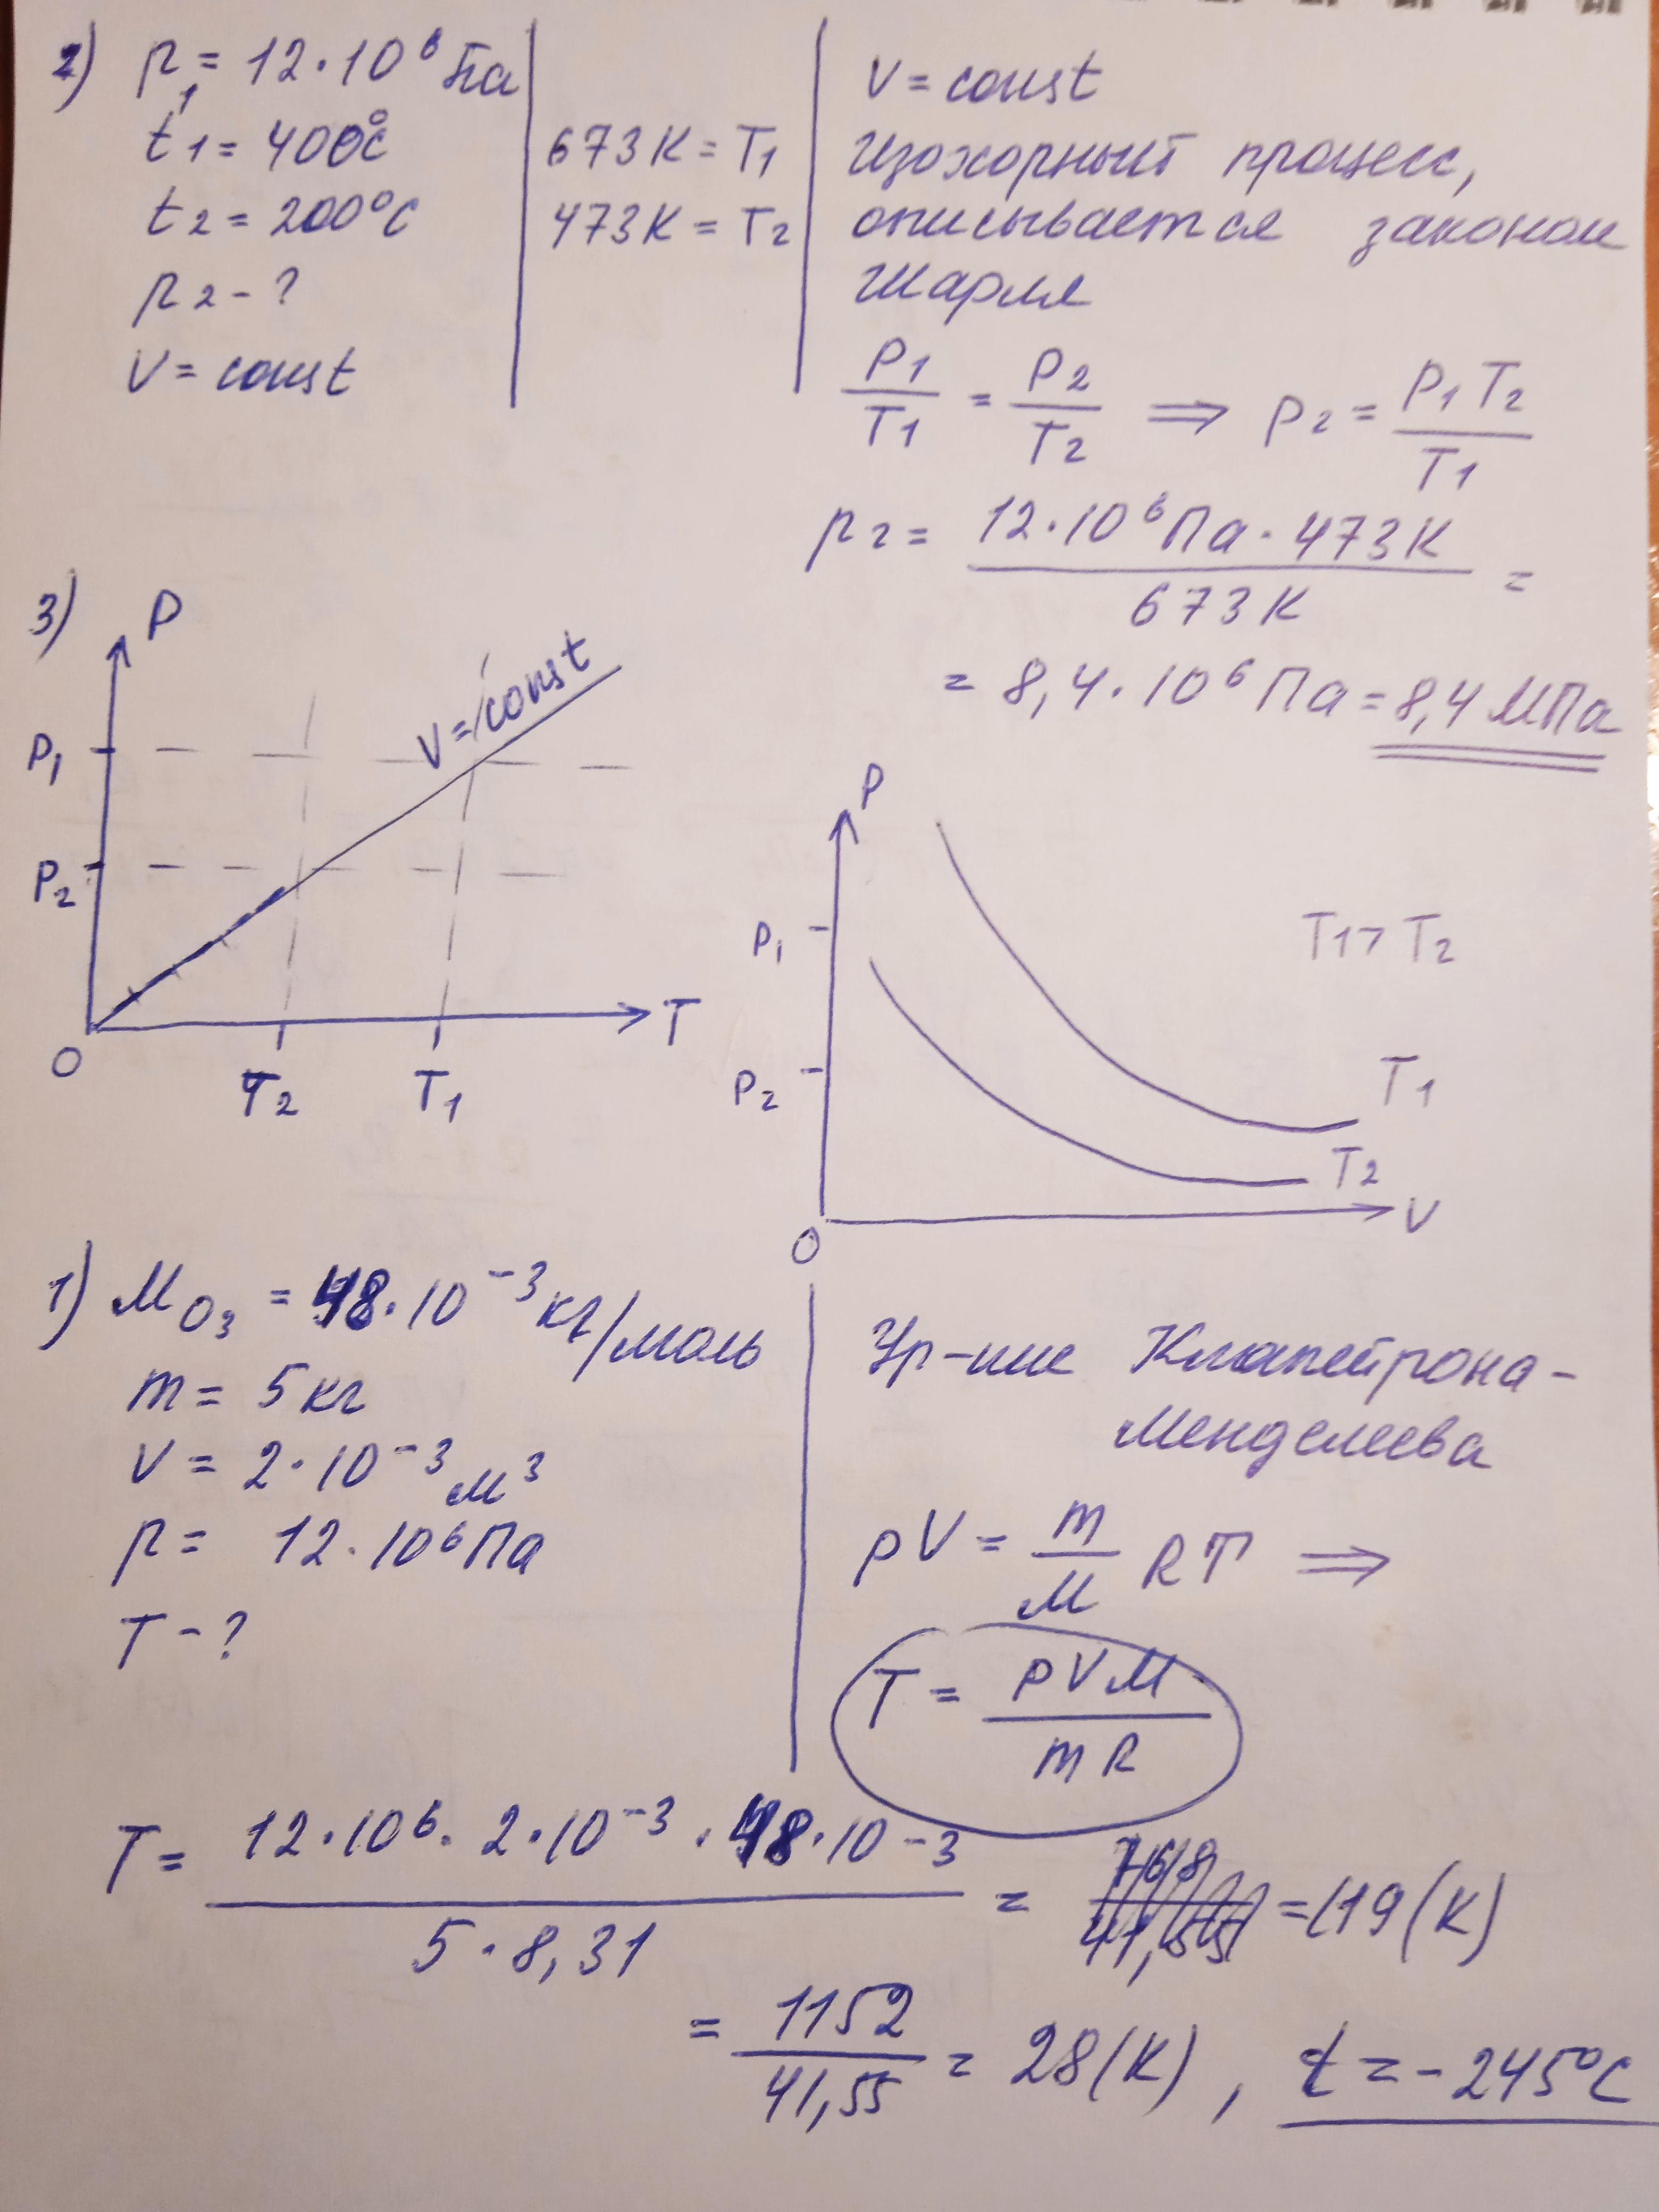 2) p₁ = 12·10⁶ Па
t₁ = 400°C
t₂ = 200°C
p₂ - ?
V = const
673K = T₁
473K = T₂
V = const
Изохорный процесс,
описывается законом
Шарля
P₁/T₁ = P₂/T₂ ⟹ P₂ = P₁T₂/T₁
p₂ = 12·10⁶ Па · 473K / 673K =
= 8,4·10⁶ Па = 8,4 МПа
3) P
V = const
P₁
P₂
O
T₂ T₁
T
P
P₁
P₂
T₁ > T₂
T₁
T₂
V
O
1) M O₃ = 48·10⁻³ кг/моль
m = 5 кг
V = 2·10⁻³ м³
p = 12·10⁶ Па
T - ?
Ур-ние Клапейрона-
Менделеева
pV = m/M RT ⟹
T = pVM/mR
T = 12·10⁶ · 2·10⁻³ · 48·10⁻³ / 5·8,31 = = 19 (K)
= 1152/41,55 = 28 (K), t = -245°C